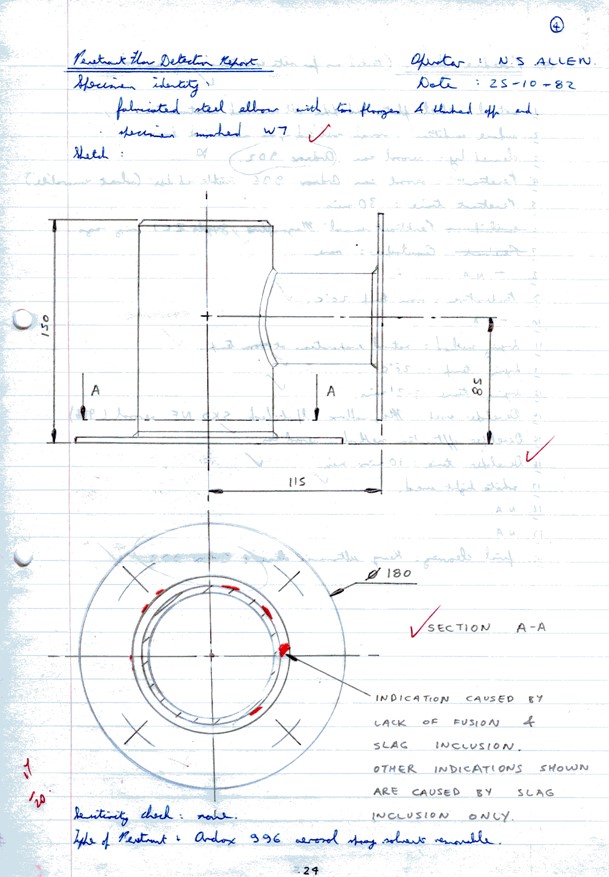 4
Penetrant Flaw Detection Report
Operator : N.S ALLEN.
Specimen identity :
Date : 25-10-82
fabricated steel elbow with two flanges & blanked off end.
specimen marked W7
Sketch :
150
A
A
85
115
Ø 180
SECTION A-A
INDICATION CAUSED BY
LACK OF FUSION &
SLAG INCLUSION.
OTHER INDICATIONS SHOWN
ARE CAUSED BY SLAG
INCLUSION ONLY.
17
/20
Sensitivity check : none.
Type of Penetrant : Ardox 996 aerosol spray solvent removable.
24